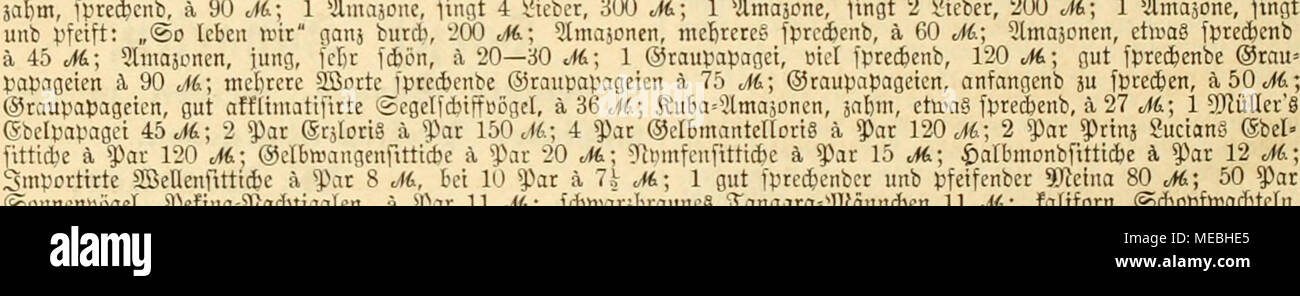 zahm, sprechend, à 90 ℳ; 1 Amazone, singt 4 Lieder, 300 ℳ; 1 Amazone, singt 2 Lieder, 200 ℳ; 1 Amazone, singt
und pfeift: „So leben wir“ ganz durch, 200 ℳ; Amazonen, mehreres sprechend, à 60 ℳ; Amazonen, etwas sprechend
à 45 ℳ; Amazonen, jung, sehr schön, à 20—30 ℳ; 1 Graupapagei, viel sprechend, 120 ℳ; gut sprechende Grau-
papageien à 90 ℳ; mehrere Worte sprechende Graupapageien à 75 ℳ; Graupapageien, anfangend zu sprechen, à 50 ℳ;
Graupapageien, gut akklimatisirte Segelschiffvögel, à 36 ℳ; Kuba-Amazonen, zahm, etwas sprechend, à 27 ℳ; 1 Müller's
Edelpapagei 45 ℳ; 2 Par Erzloris à Par 150 ℳ; 4 Par Gelbmantelloris à Par 120 ℳ; 2 Par Prinz Lucians Edel-
sittiche à Par 120 ℳ; Gelbwangensittiche à Par 20 ℳ; Nymfensittiche à Par 15 ℳ; Halbmondsittiche à Par 12 ℳ;
Importirte Wellensittiche à Par 8 ℳ, bei 10 Par à 7½ ℳ; 1 gut sprechender und pfeifender Meina 80 ℳ; 50 Par
Sonnenvögel, Peking-Nachtigalen, à Par 11 ℳ; schwarzbraunes Tangara-Männchen 11 ℳ; kaliforn. Schopfwachteln
alamy
Image ID: MEBHE5
www.alamy.com